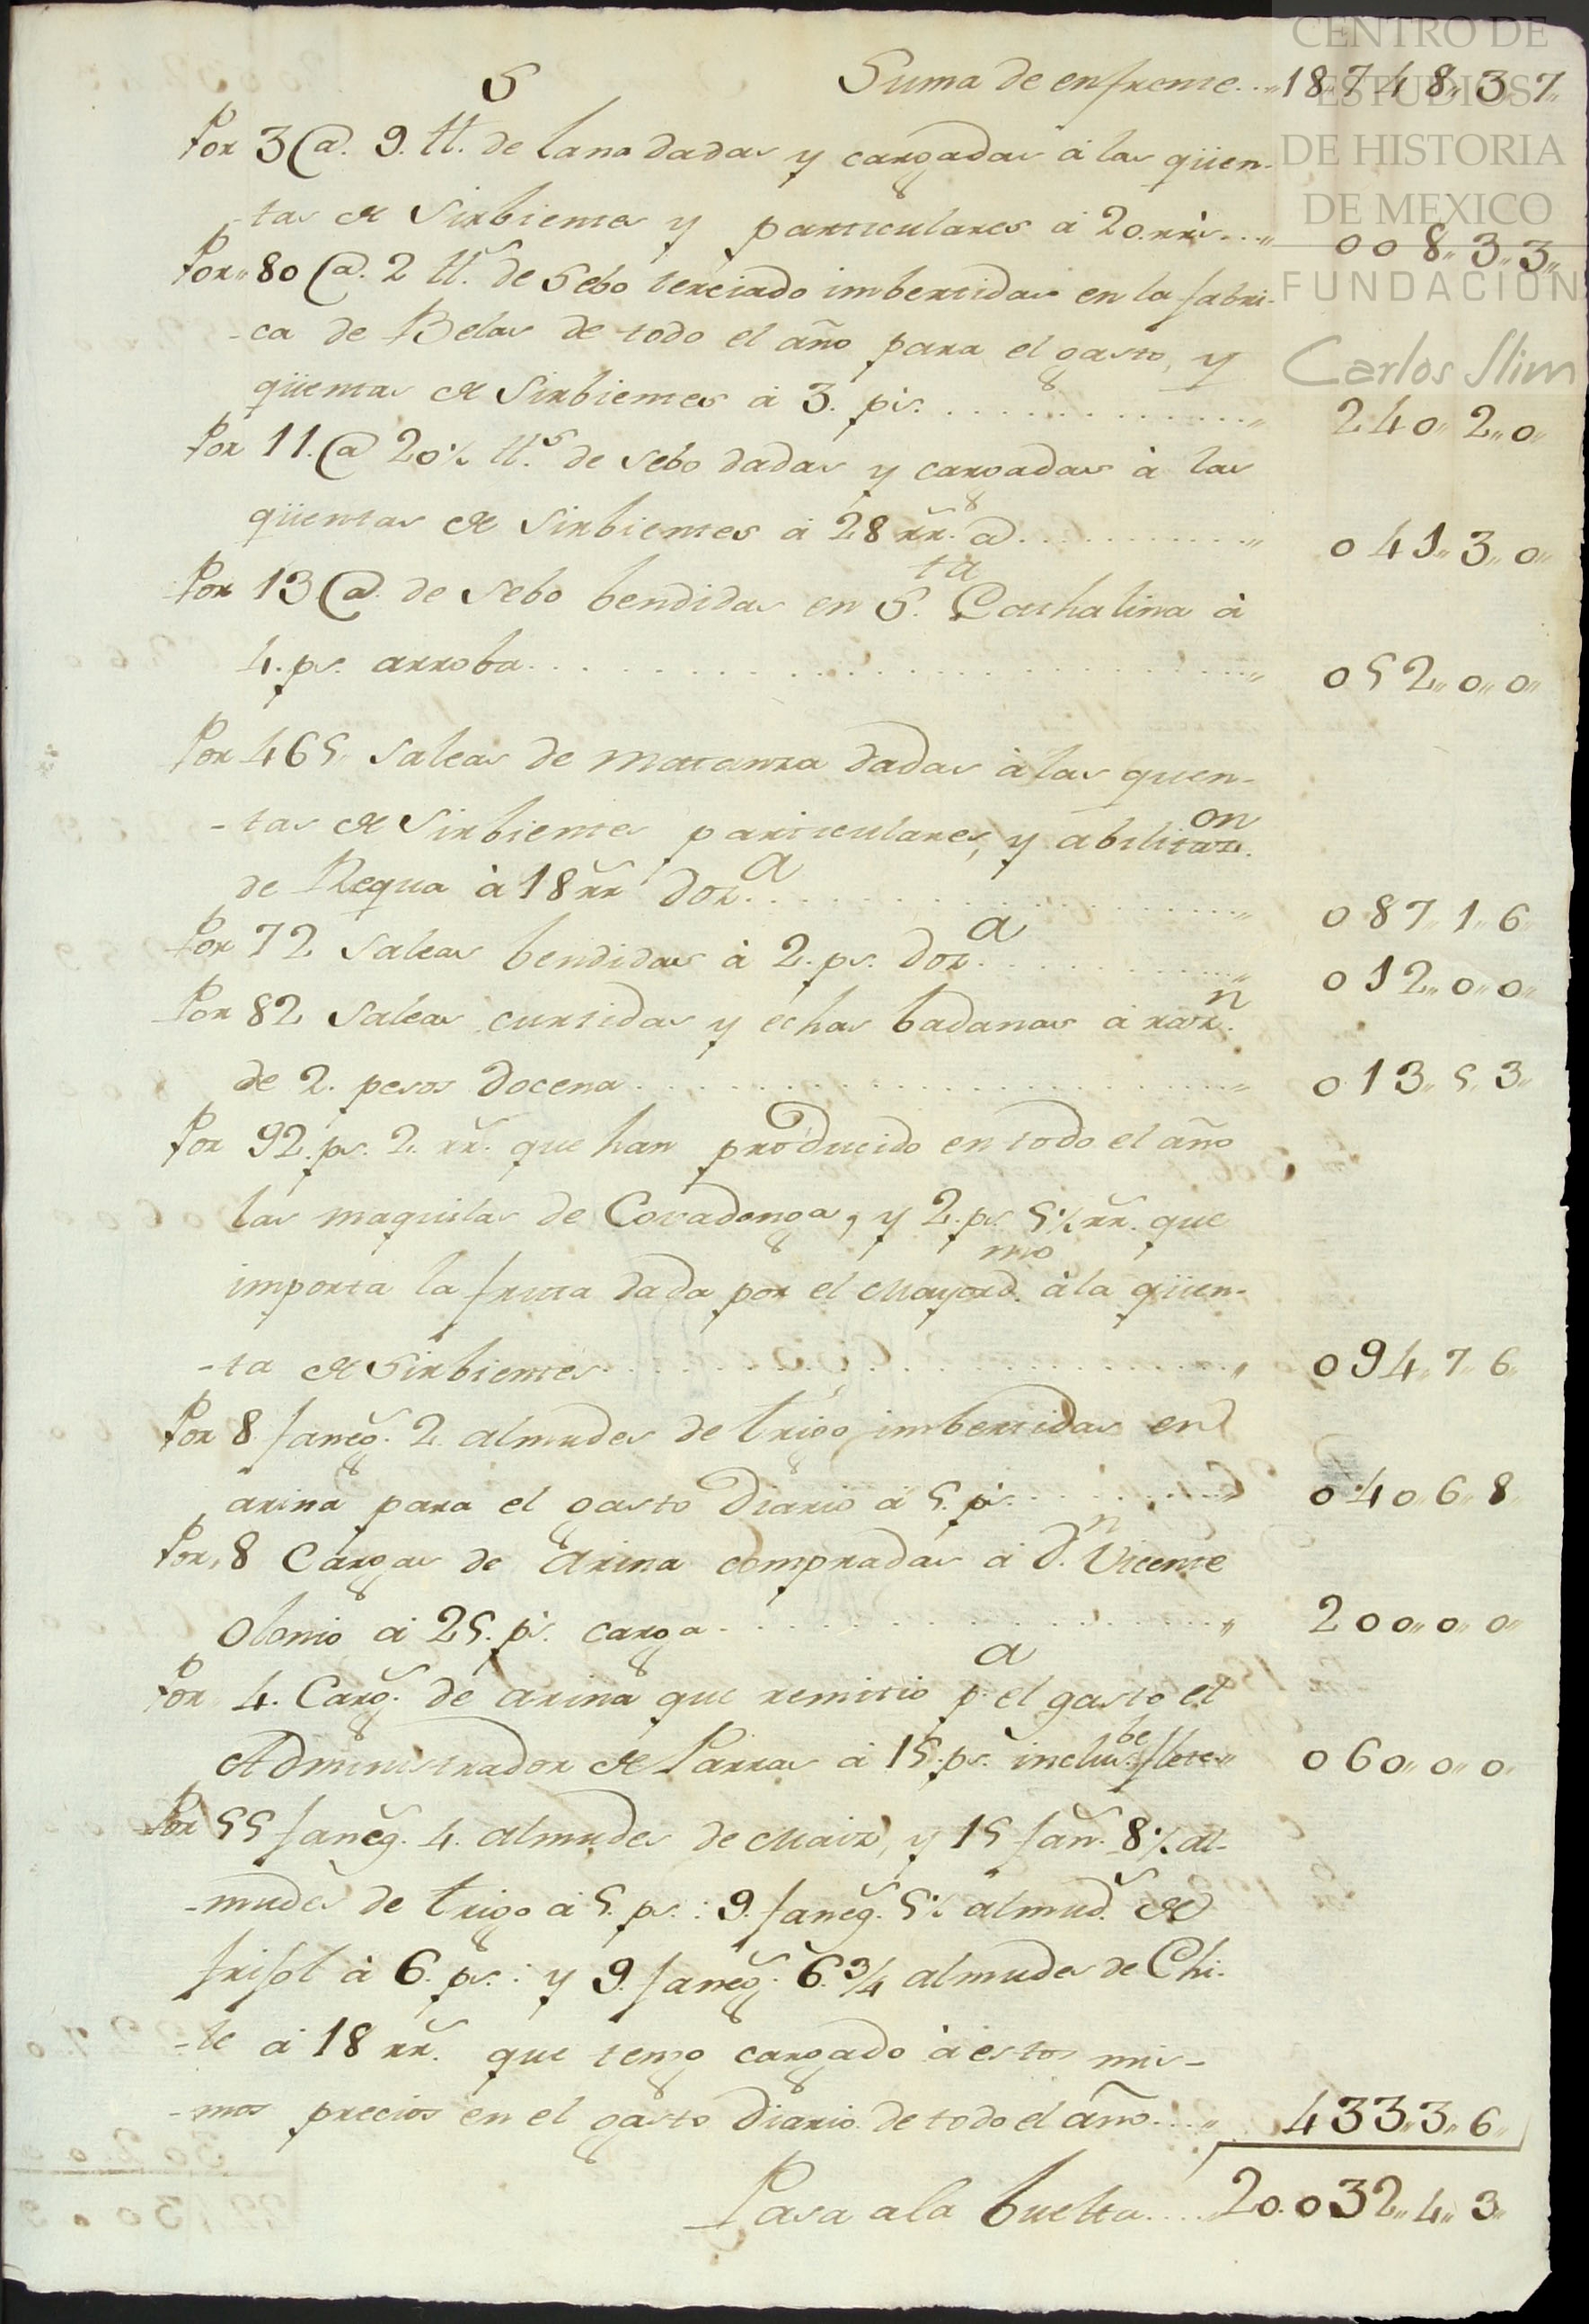 CENTRO DE
ESTUDIOS
DE HISTORIA
DE MEXICO
FUNDACION
Carlos Slim
5 Suma de enfrente...18748,,3,,7,,
Por 3 @. 9. tt. de lana dadas y cargadas á las qüen-
-tas de Sirbientes y particulares á 20. rr.s...,, 008,,3,,3,,
Por,,80 @. 2 tt.s de Sebo terciado imbertidas en la fabri-
-ca de Belas de todo el año para el gasto, y
qüentas de Sirbientes á 3. p.s............,, 240,,2,,0,,
Por 11. @ 20½ tt.s de sebo dadas y cargadas à las
qüentas de Sirbientes á 28 rr. @...........,, 041,,3,,0,,
Por 13 @. de sebo bendidas en S.ta Cathalina à
4. p.s. arroba..........................,, 052,,0,,0,,
Por 465,, Saleas de matanza dadas à las quen-
-tas de Sirbientes particulares, y abilitaz.on
de Requa à 18 rr doz.a....................,, 087,,1,,6
Por 72 Saleas bendidas à 2. p.s. doz.a...........,, 012,,0,,0,,
Por 82 Saleas curtidas y echas badanas á raz.n
de 2. pesos docena........................,, 013,,5,,3,,
Por 92. p.s. 2. rr. que han producido en todo el año
las maquilas de Covadonga, y 2. p.s 5½ rr. que
importa la fruta dada por el Mayord.mo à la qüen-
-ta de Sirbientes..........................,, 094,,7,,6,,
Por 8 faneg. 2. almudes de trigo imbertidas en
arina para el gasto Diario á 5. p.s...........,, 040,,6,,8,,
Por,,8 Cargas de Arina compradas á D.n Vicente
Olonio á 25. p.s. carga....................,, 200,,0,,0,,
Por 4. Carg. de arina que remitio p.a el gasto el
Administrador de Parras á 15. p.s. inclus.be flete,, 060,,0,,0,,
Por 55 faneg. 4. almudes de Maiz, y 15 fan. 8½ al-
-mudes de trigo á 5. p.s.: 9. faneg. 5½ almud. de
frisol à 6. p.s.: y 9. faneg. 6.¾ almudes de Chi-
-le á 18 rr. que tengo cargado á estos mis-
-mos precios en el gasto Diario de todo el año....,, 433,,3,,6,,
Pasa a la buelta.....20.032,,4,,3,,